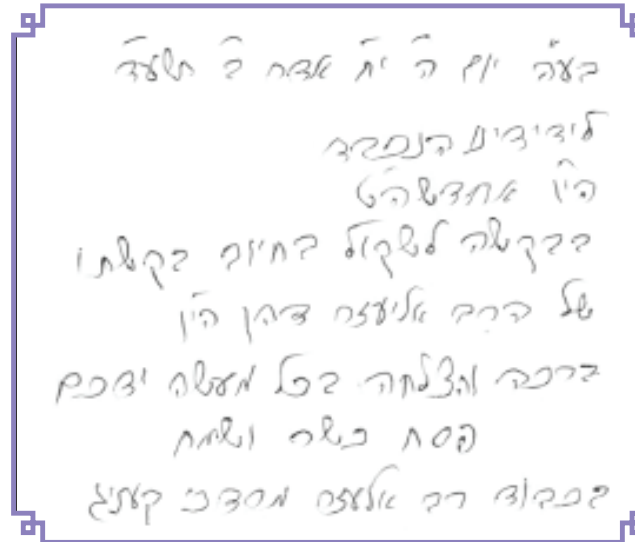 בע״ה יום ה׳ י״ח אדר ב׳ תשע״ד
לידידינו הנכבד
הי״ו
בבקשה לשקול בחיוב בקשתו
של הרב אליעזר דהן הי״ו
ברכה והצלחה בכל מעשה ידכם
פסח כשר ושמח
בכבוד רב אלעזר מרדכי קעניג